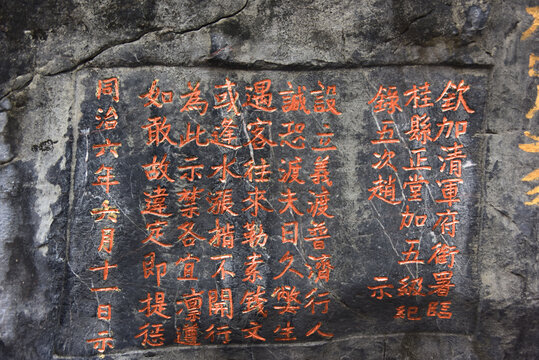 欽加清軍府銜署臨
桂縣正堂加五級紀
錄五次趙　示
設立義渡普濟行人
誠恐渡夫日久弊生
遇客往來勒索錢文
或逢水漲措不開行
為此示禁各宜凜遵
如敢故違定即提懲
同治六年六月十一日示